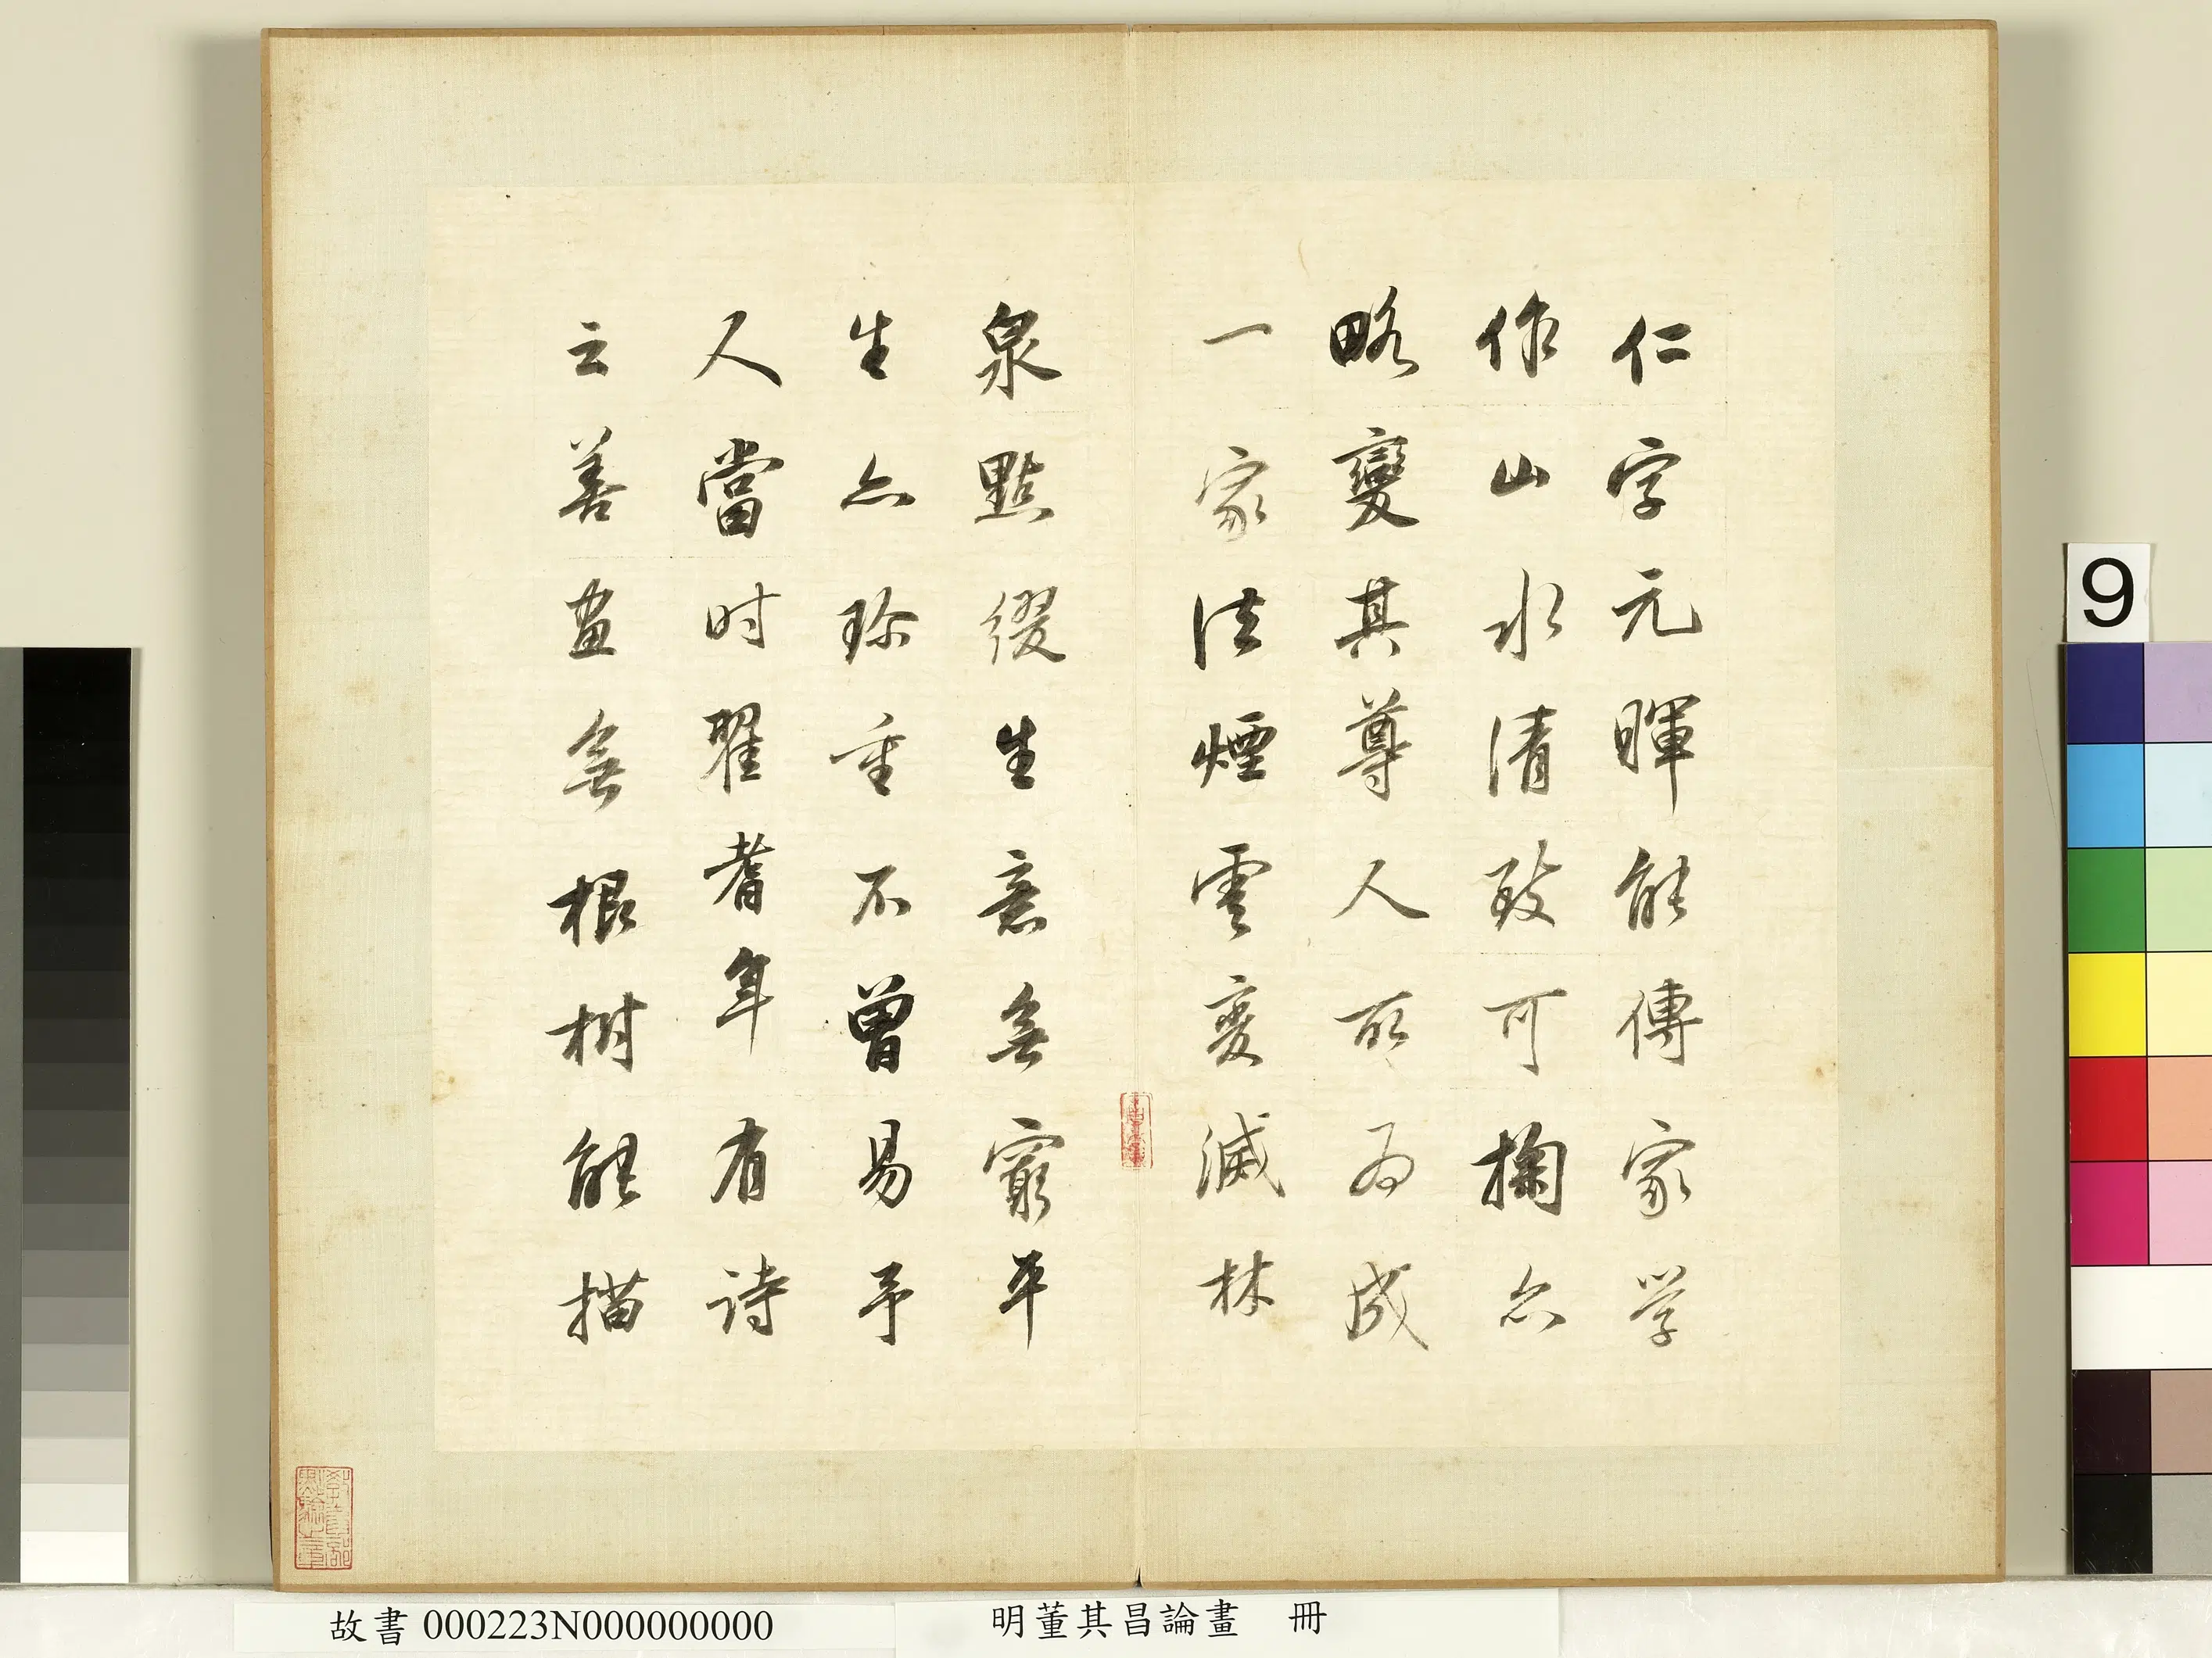 仁字元暉能傳家学
作山水清致可掬亦
略變其尊人所為成
一家法煙雲变滅林
泉點綴生意無窮平
生亦珍重不曾易予
人當时翟耆年有詩
云善畫無根樹能描
9
故書000223N000000000
明董其昌論畫 冊